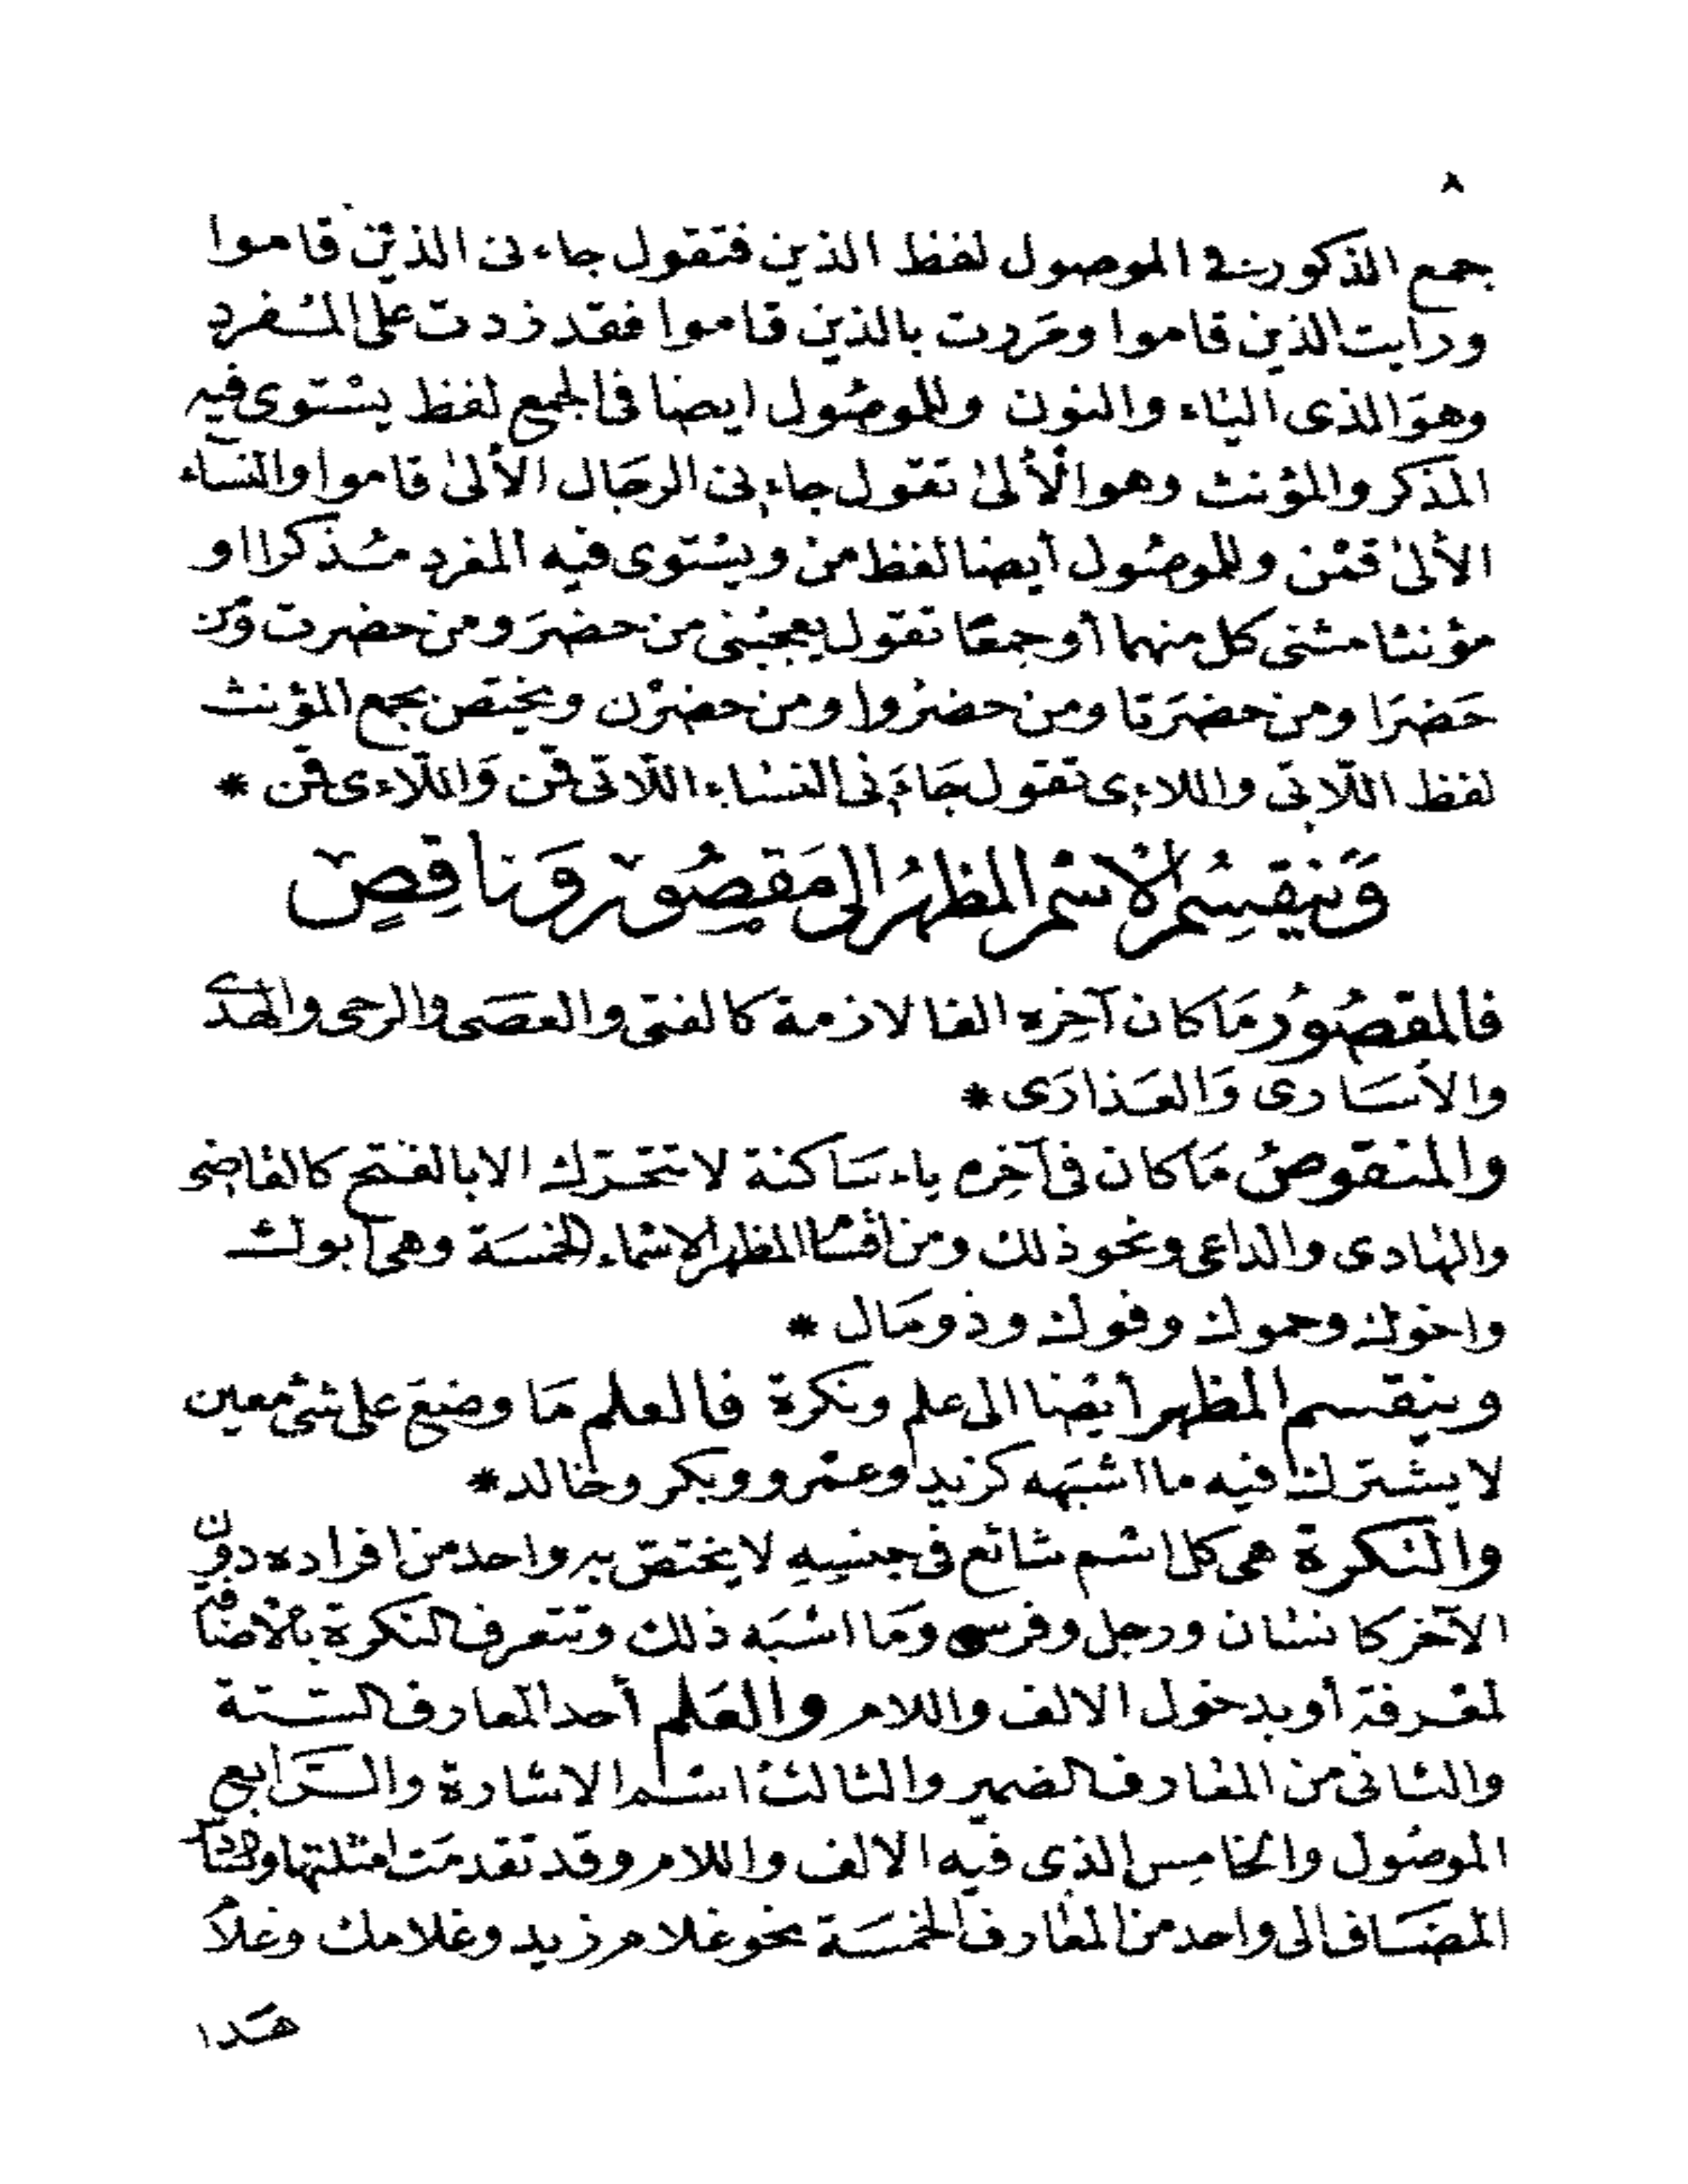 ٨
جمع الذكور في الموصول لفظ الذين فتقول جاءنى الذين قاموا
ورايت الذين قاموا ومَررت بالذين قاموا فقد زدت على المُفرد
وهوَ الذى الياء والنون وللموصُول ايضا فى الجمع لفظ يسْتوى فيه
المذكر والمؤنث وهو الأُلىٰ تقول جاءنى الرجَال الأُلىٰ قاموا والنسَاء
الأُلىٰ قمْن وللموصُول أيضا لفظ من ويسْتوى فيه المفرد مُذكرا او
مؤنثا مثنى كل منهما أو جمعًا تقول يعجبُنى من حضرَ ومن حضرت ومَن
حَضرَا ومن حضرَتا ومن حضرُوا ومن حضرْن ويختص بجمع المؤنث
لفظ اللّاتى واللاءى تقول جَاءَنى النسَاء اللّاتى قمن وَاللّاءى قمن *
وَينقسِمُ الْاسْمُ المظهرُ الى مَقصُورٍ وَناقِصٍ
فالمقصُورُ مَا كان آخِره الفا لازمة كالفتى والعصَى والرحى والهُدى
والأسَارى وَالعَذارَى *
والمنقوصُ مَا كان فى آخِره ياء سَاكنة لا تتحرّك الا بالفتح كالقاضى
والهَادى والداعى ونحو ذلك ومن اقسَام المظهر الاسْماء الخمسَة وهى أبوك
واخوك وحموك وفوك وذو مَال *
وينقسم المظهر أيْضا الى علم ونكرة فالعلم مَا وضعَ على شئ معين
لا يشْترك فيه ما اشبَهه كزيد وعمْرو وبكر وخالد *
والنكرة هى كل اسْم شائع فى جنسِهِ لا يختصّ به واحد من افراده دون
الآخر كانسَان ورجل وفرس وَمَا اشبَه ذلك وتتعرف النكرة بالْاضَافة
لمعْرفة أو بدخول الالف واللام والعَلم أحد المعارف السّتة
والثانى من المعَارف الضمير والثالث اسْم الاشارة والرّابع
الموصُول والخامِس الذى فيه الالف واللام وقد تقدمَت امثلتها والسَّادس
المضَاف الى واحد من المعَارف الخمسَة نحو غلام زيد وغلامك وغلام
هَذا